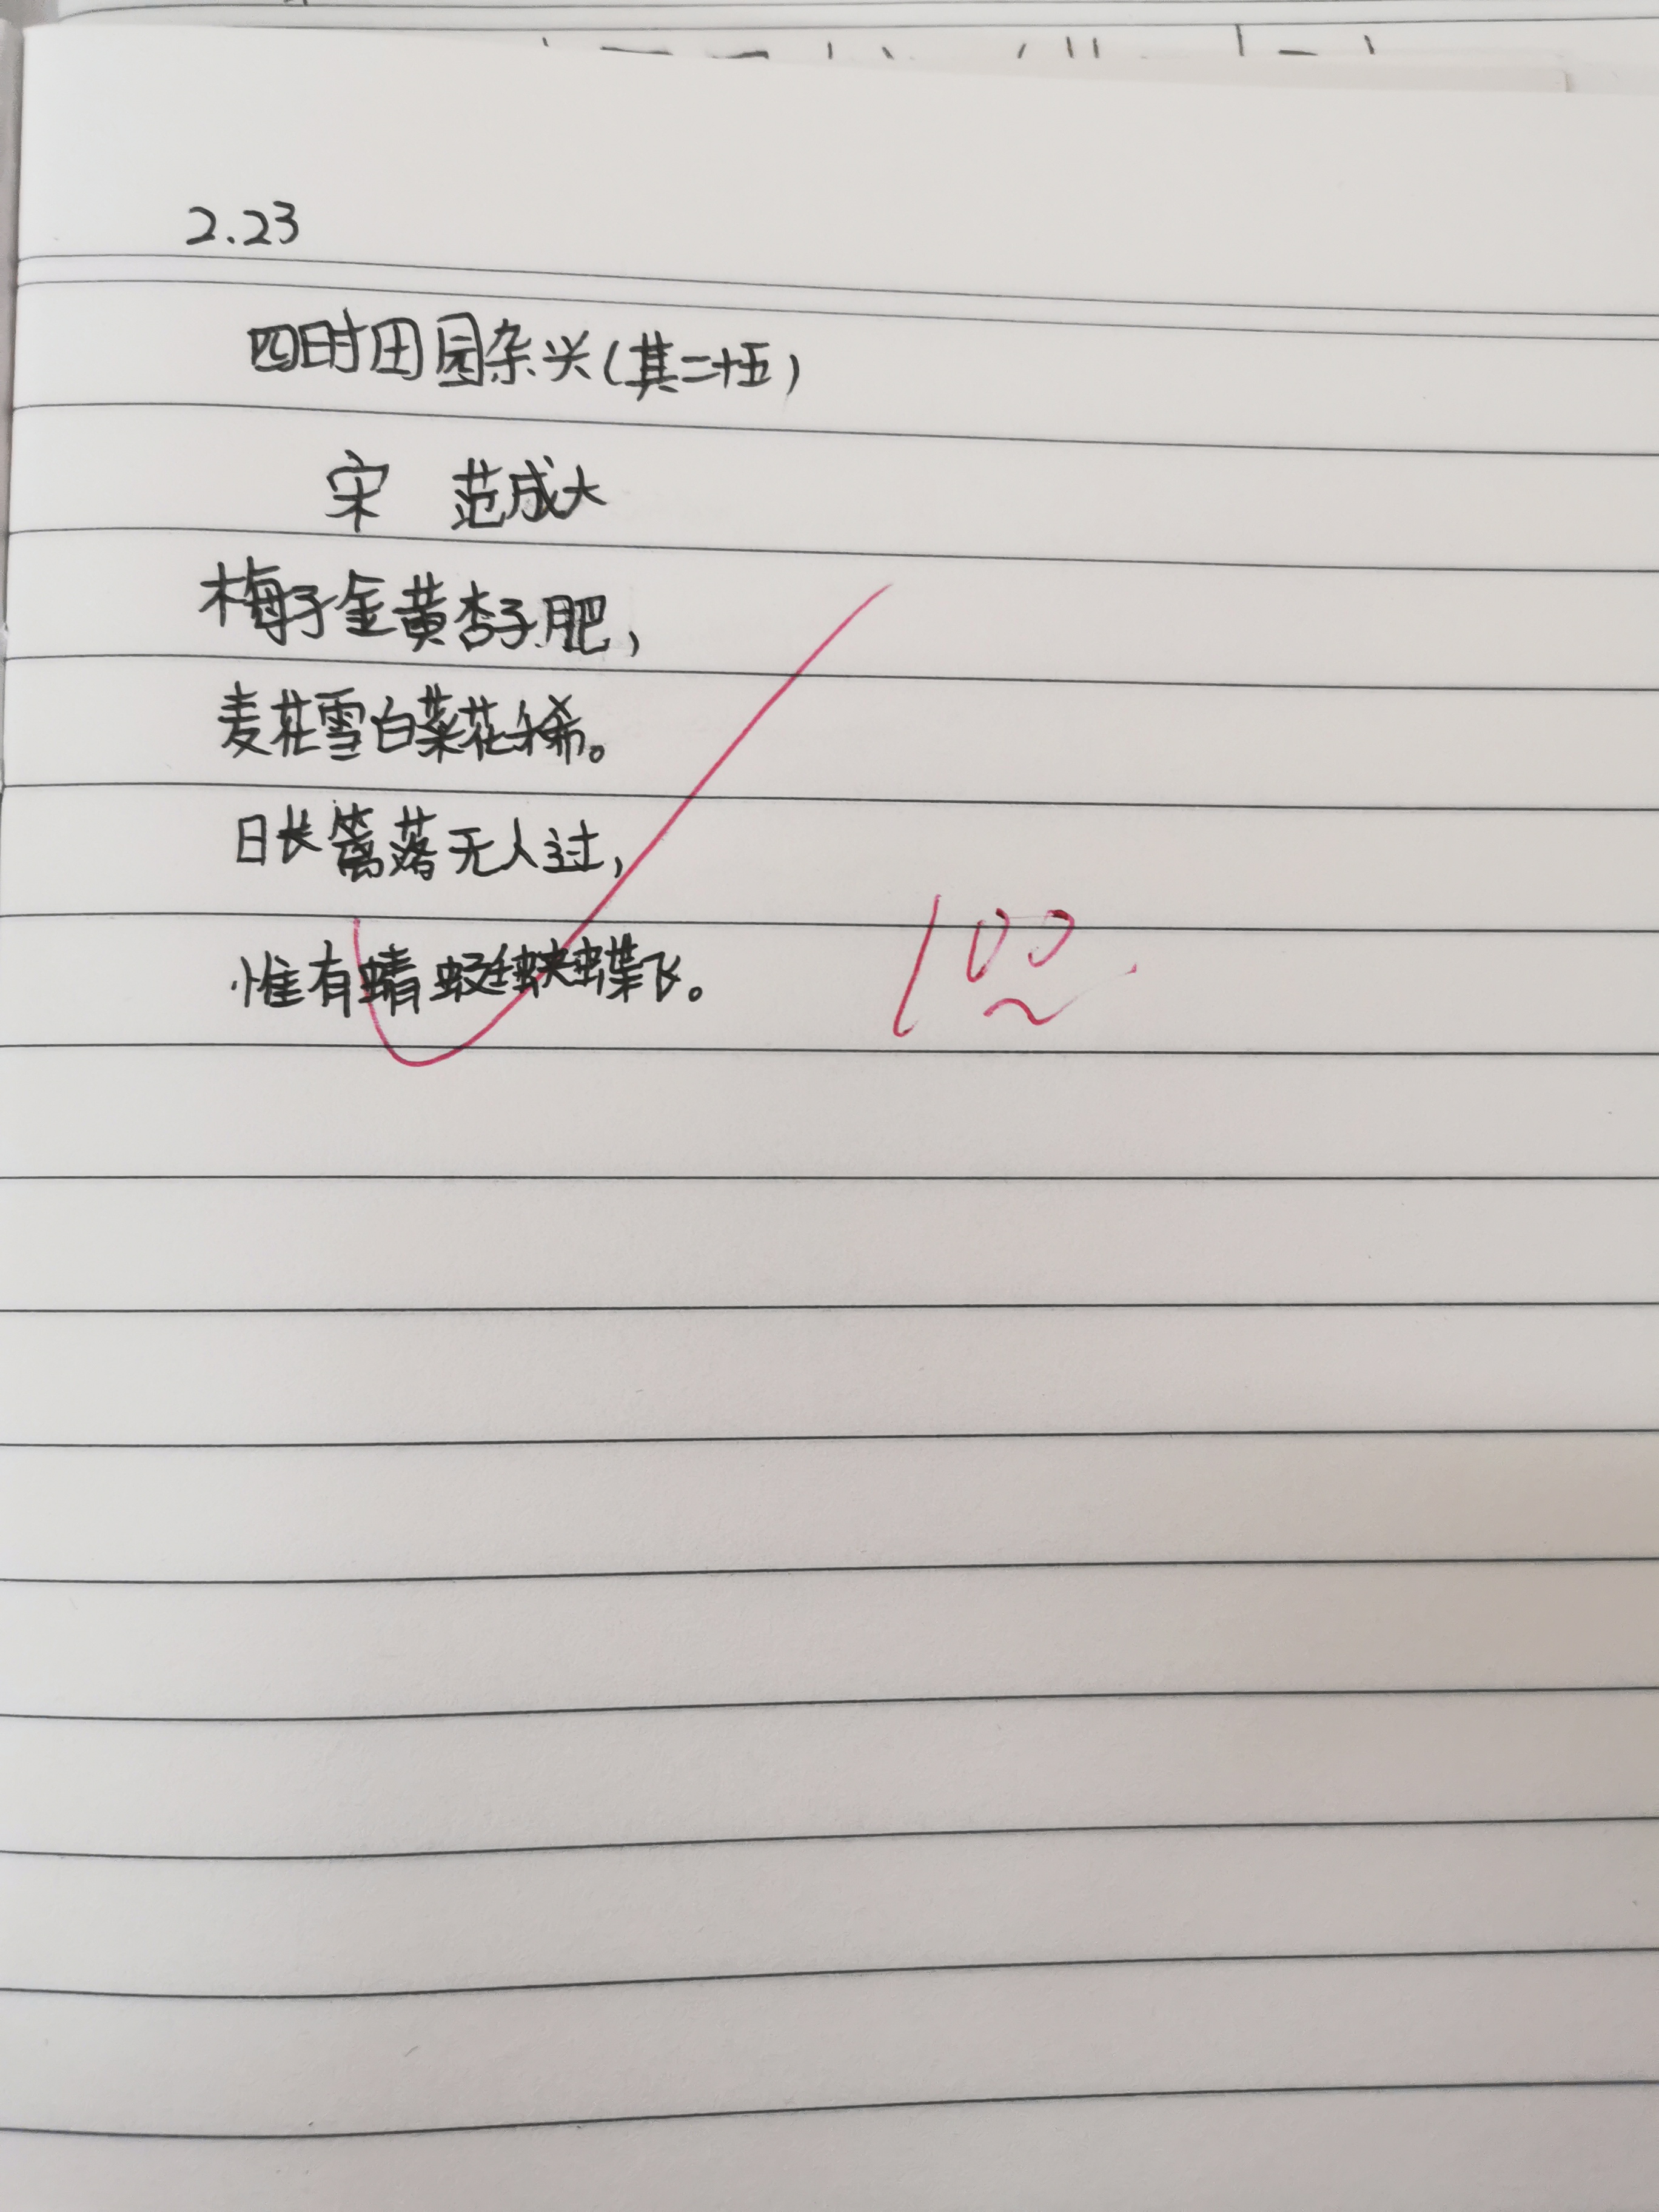 2.23
四时田园杂兴(其二十五)
宋 范成大
梅子金黄杏子肥,
麦花雪白菜花稀。
日长篱落无人过,
惟有蜻蜓蛱蝶飞。
100